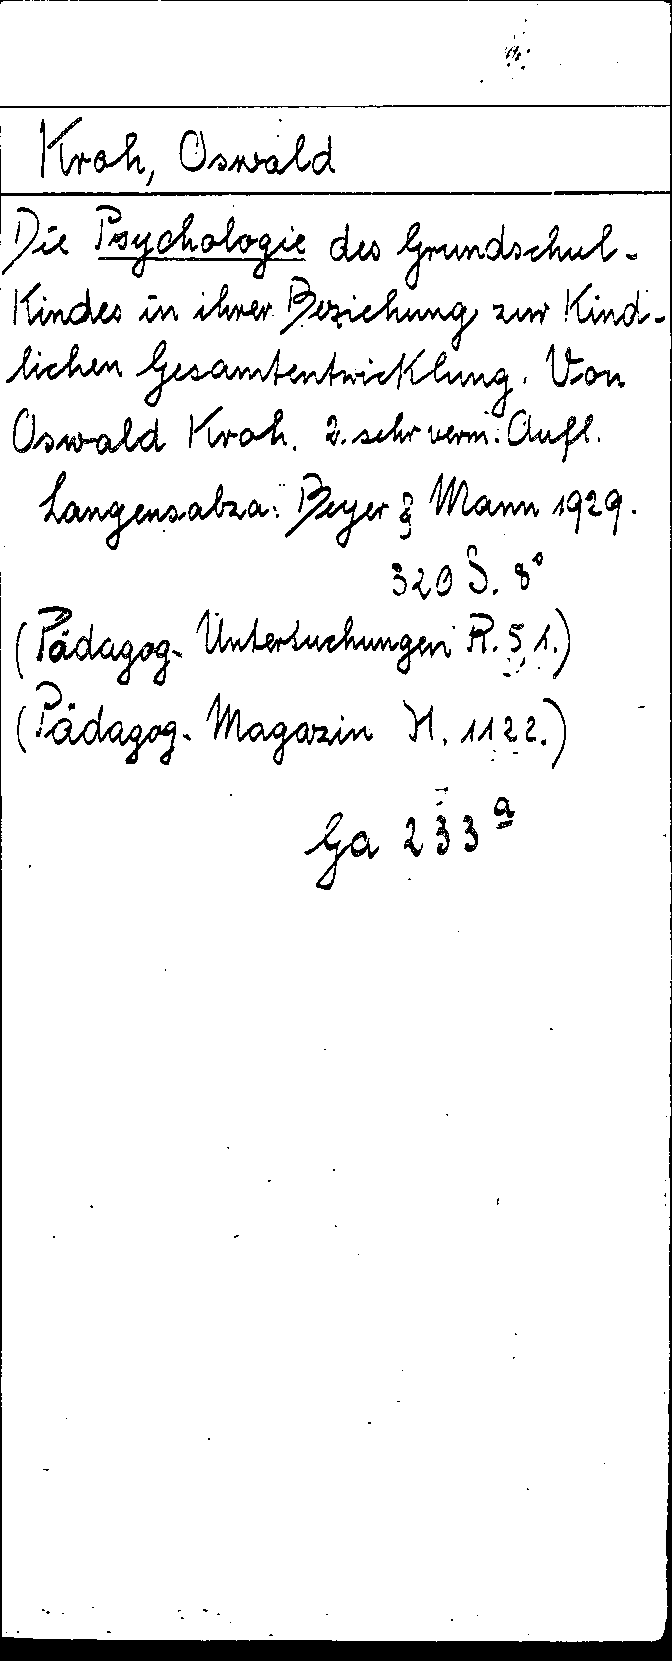 Kroh, Oswald
Die Psychologie des Grundschul-
Kindes in ihrer Beziehung zur Kind-
lichen Gesamtentwicklung. Von
Oswald Kroh. 2. sehr verm. Aufl.
Langensalza: Beyer & Mann 1929.
320 S. 8°
(Pädagog. Untersuchungen R. 5,1.)
(Pädagog. Magazin H. 1122.)
Ga 233 a